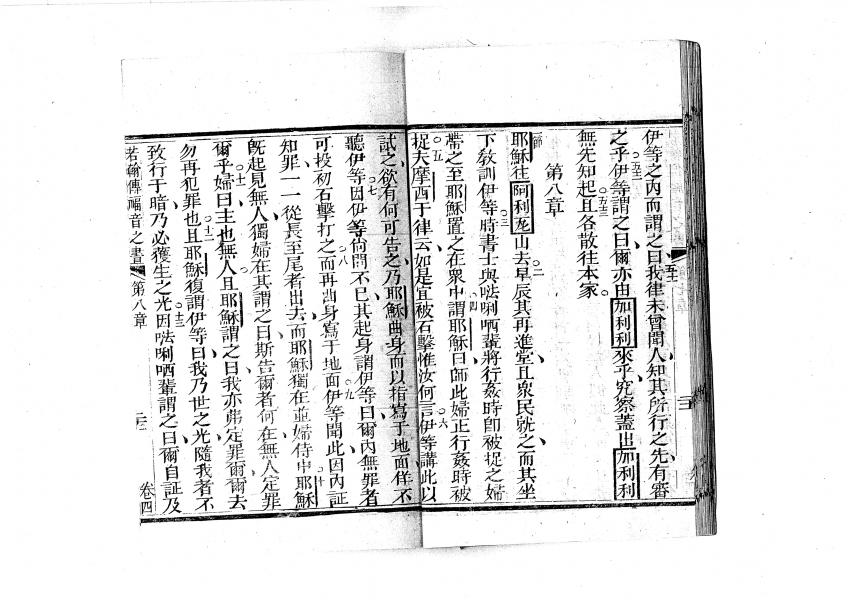 伊等之內而謂之曰我律未曾聞人知其所行之先有審
之乎伊等謂之曰爾亦由加利利來乎究察蓋出加利利
無先知起且各散往本家
第八章
耶穌往阿利瓦山去早辰其再進堂且眾民就之而其坐
下教訓伊等時書士與𠵽唎哂輩將行姦時即被捉之婦
帶之至耶穌置之在眾中謂耶穌曰師此婦正行姦時被
捉夫摩西于律云如是宜被石擊惟汝何言伊等講此以
試之欲有何可告之乃耶穌曲身而以指寫于地面佯不
聽伊等因伊等尚問不已其起身謂伊等曰爾內無罪者
可投初石擊打之而再曲身寫于地面伊等聞此因內証
知罪一一從長至尾者出去而耶穌獨在並婦侍中耶穌
既起見無人獨婦在其謂之曰斯告爾者何在無人定罪
爾乎婦曰主也無人且耶穌謂之曰我亦弗定罪爾爾去
勿再犯罪也且耶穌復謂伊等曰我乃世之光隨我者不
致行于暗乃必獲生之光因𠵽唎哂輩謂之曰爾自証及
若翰傳福音之書 第八章 卷四